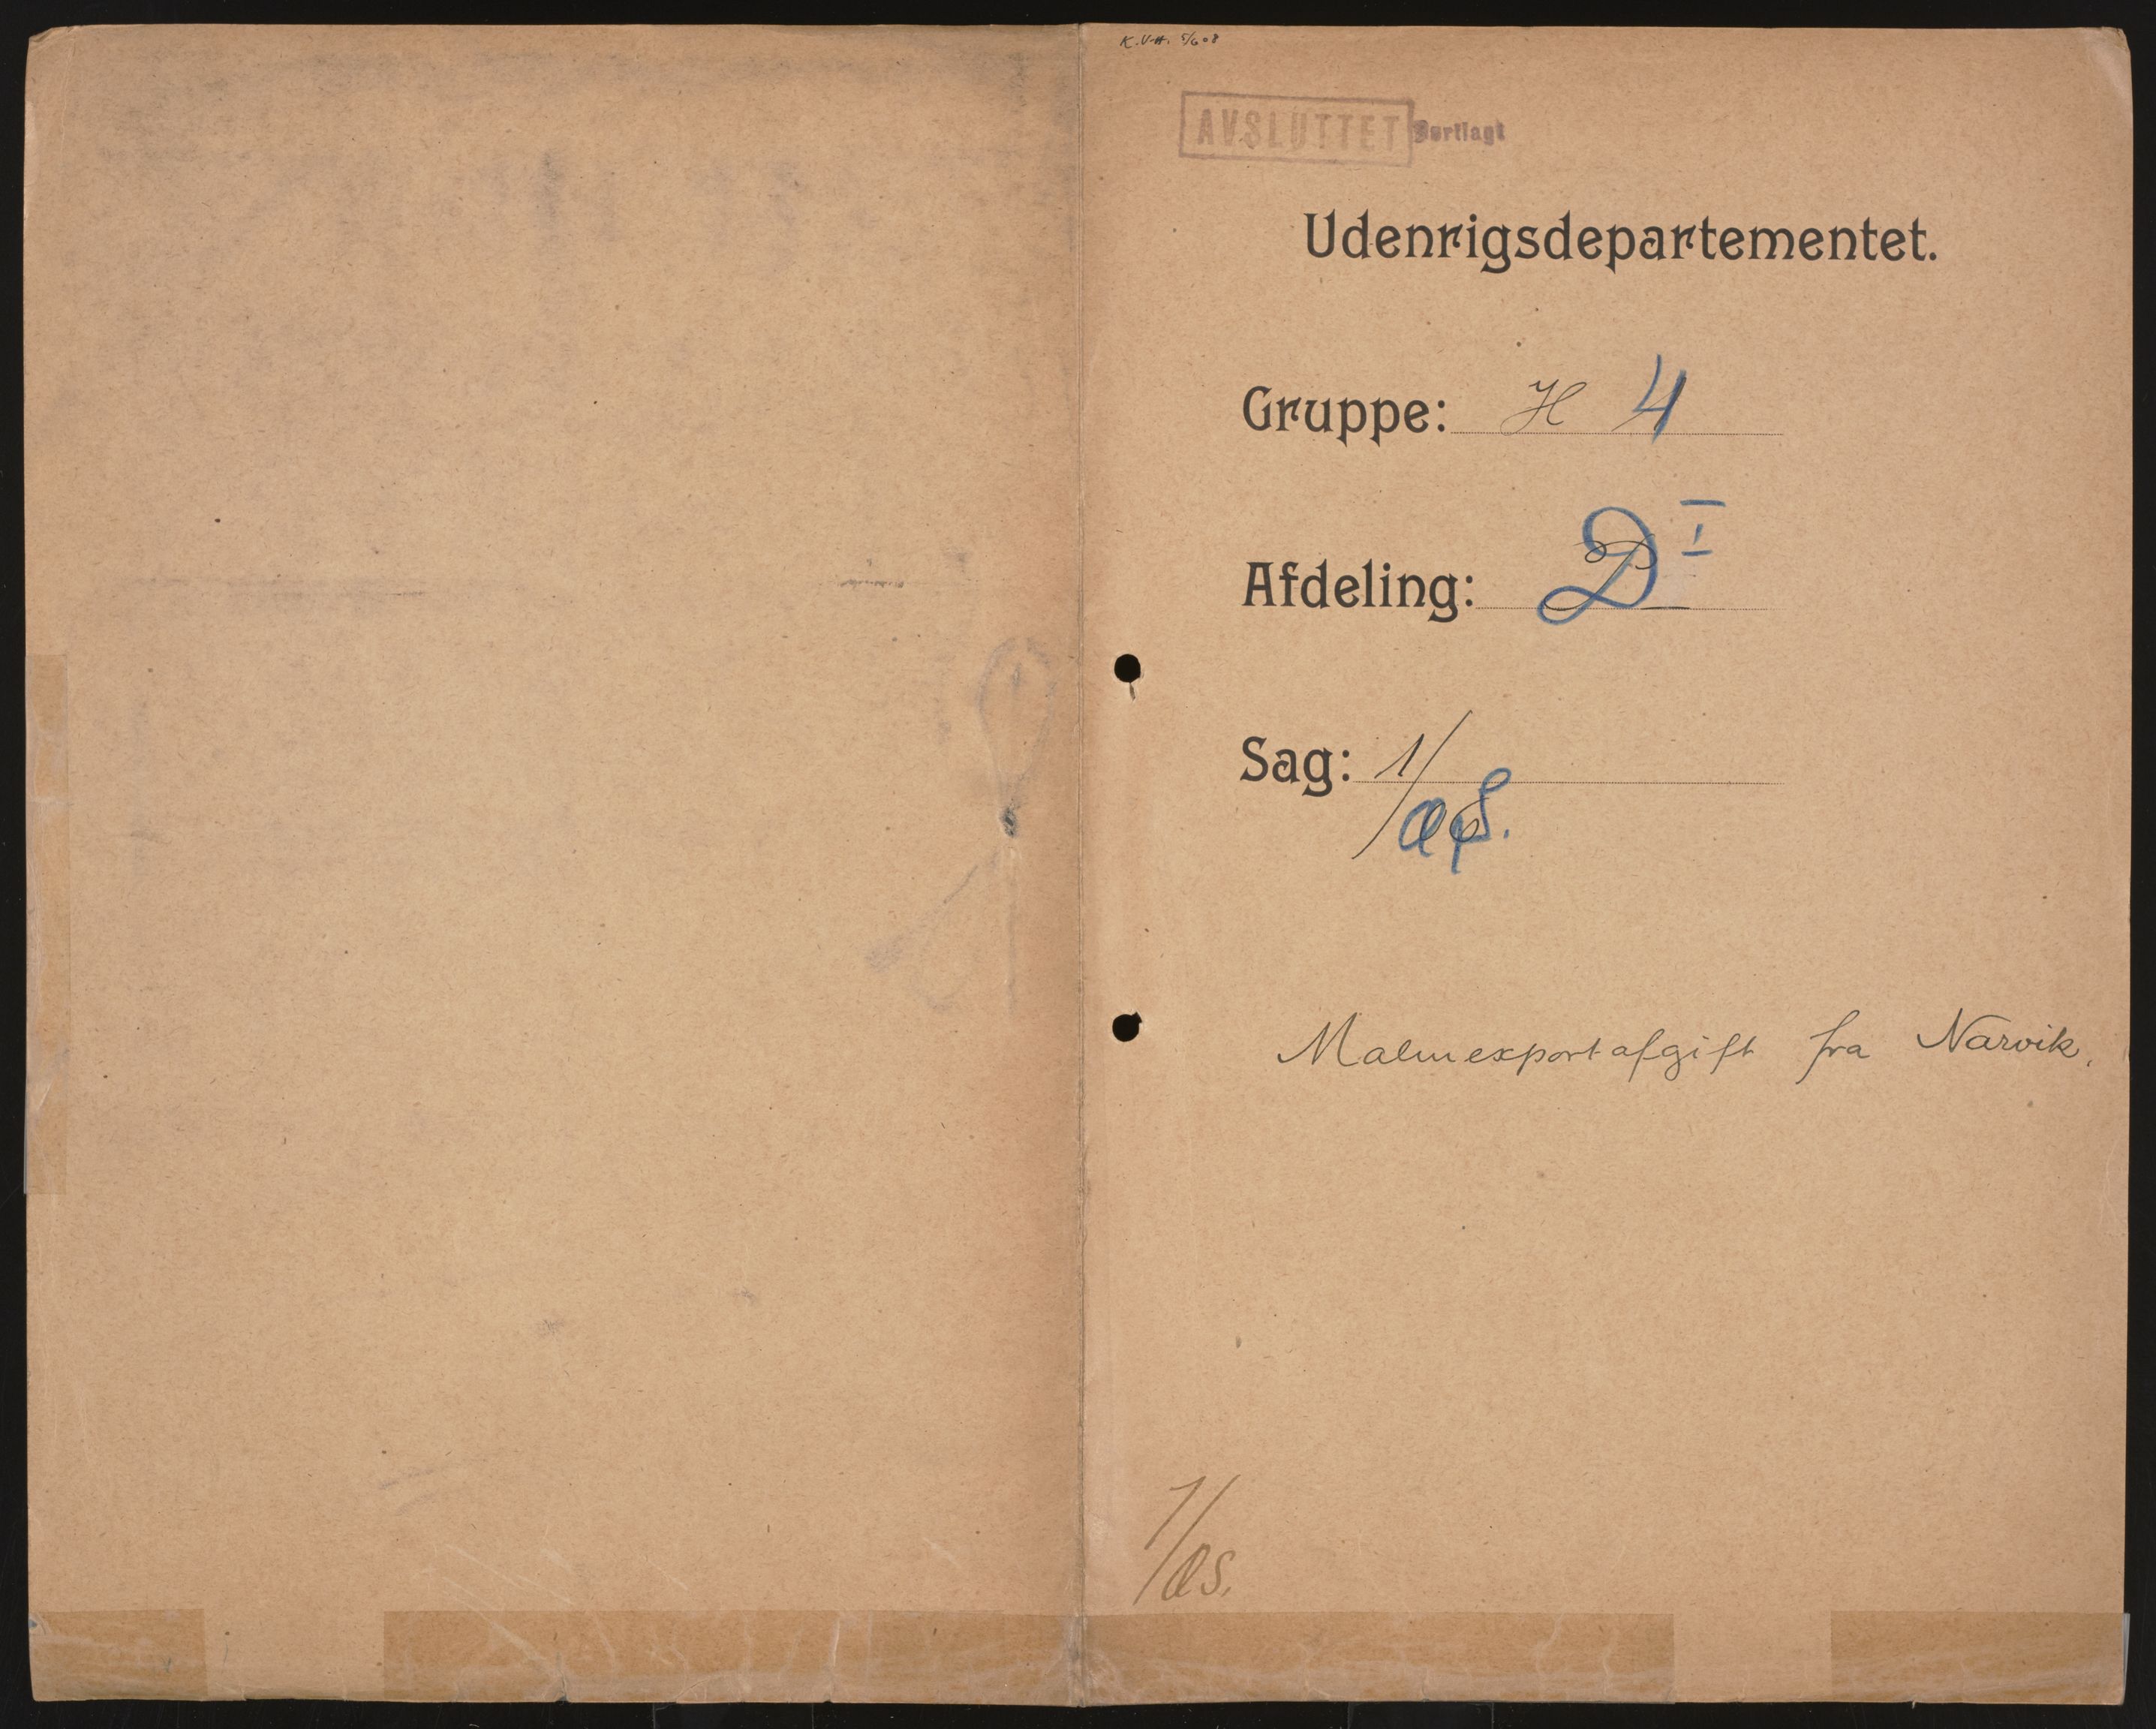 K.U.H. 5/6 08
AVSLUTTET Bortlagt
Udenrigsdepartementet.
Gruppe: H 4
Afdeling: D I
Sag: 1/
Malmexportafgift fra Narvik.
1/